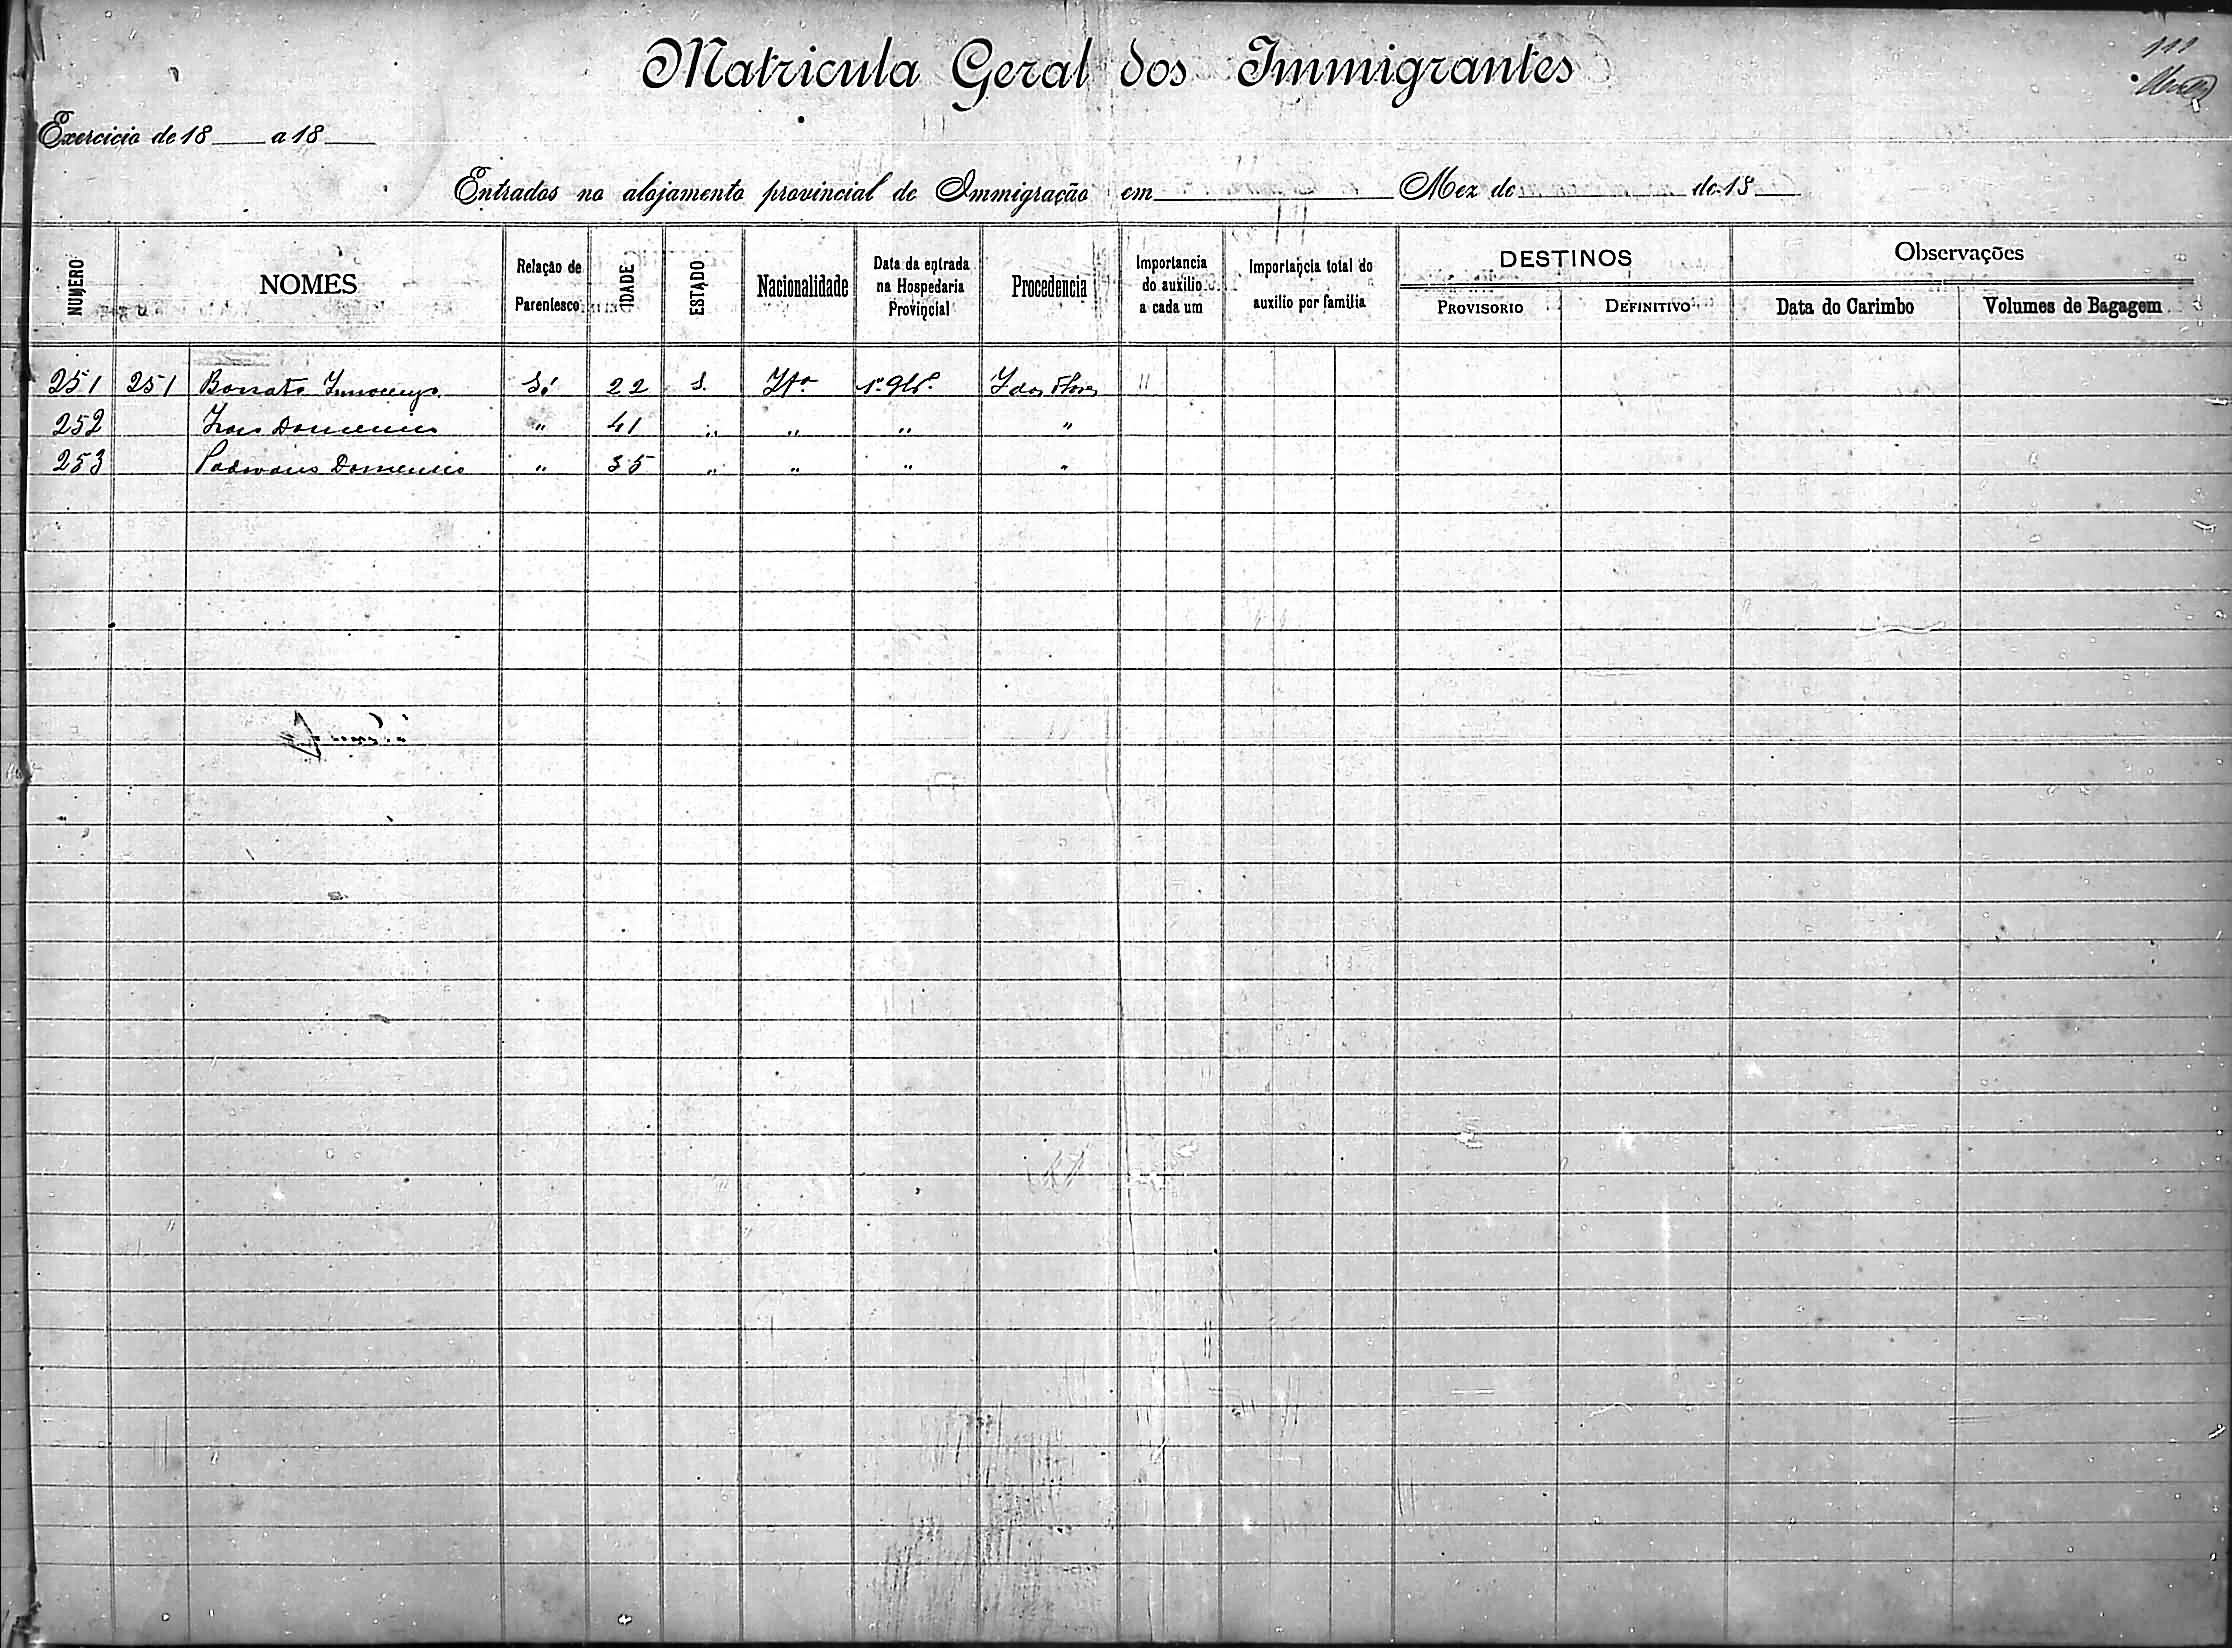 111
Matricula Geral dos Immigrantes
Exercicio de 18 a 18
Entrados no alojamento provincial de Immigração em Mez de de 18
NUMERO NOMES Relação de Parentesco IDADE ESTADO Nacionalidade Data da entrada na Hospedaria Provincial Procedencia Importancia do auxilio a cada um Importancia total do auxilio por familia DESTINOS Observações
PROVISORIO DEFINITIVO Data do Carimbo Volumes de Bagagem
251 251 Bonato Innocenzo Só 22 S. Itª "
252 Domenico " 41 " " " "
253 Padovano Domenico " 35 " " " "